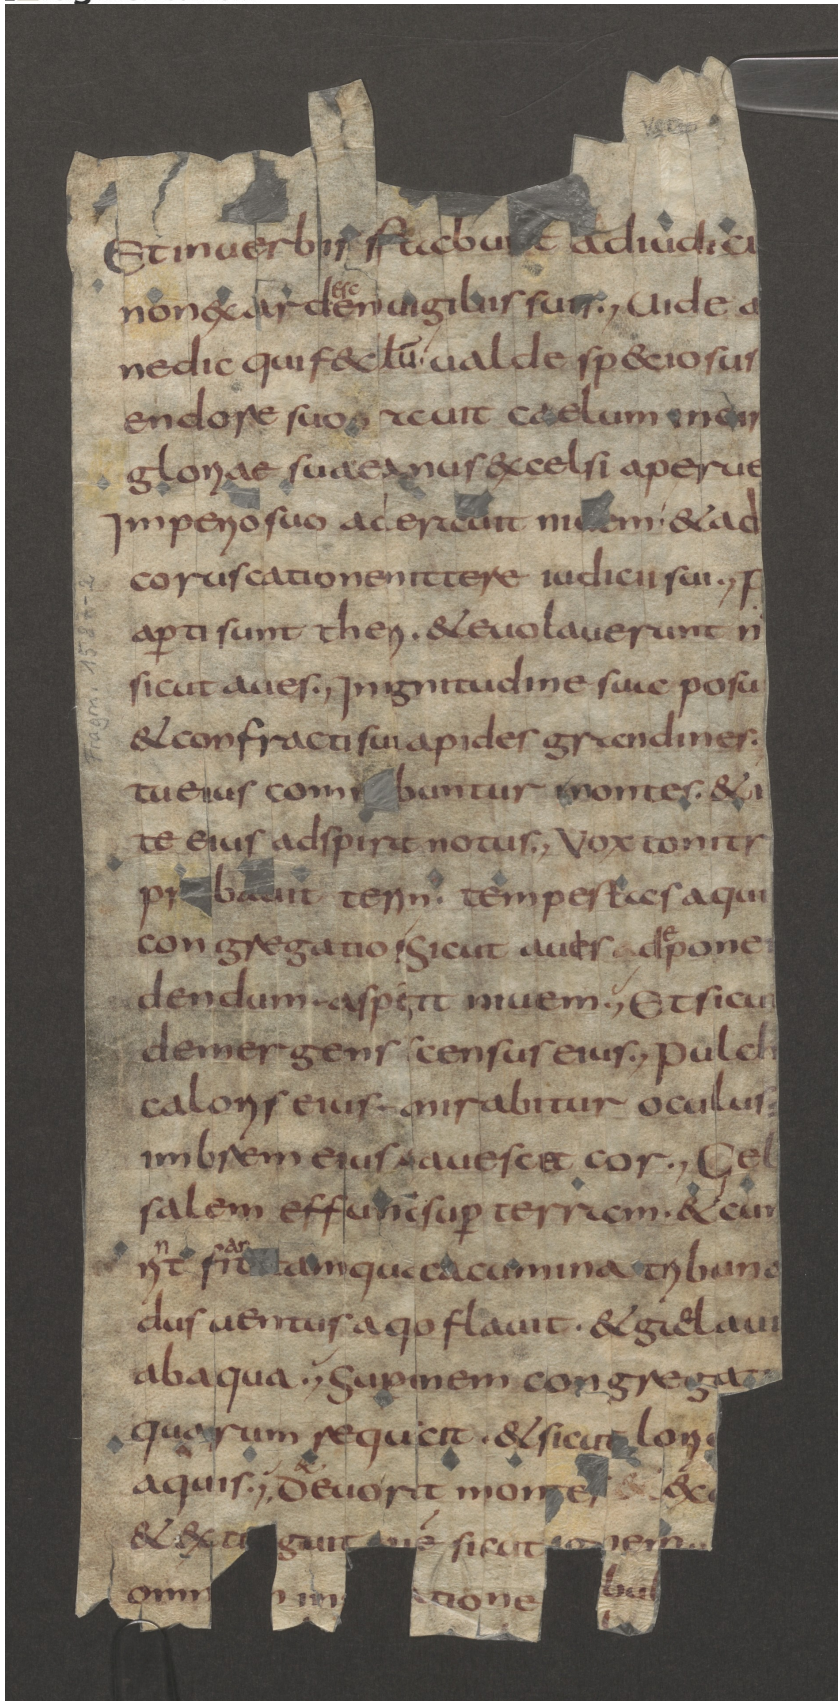 Et in uerbis stabunt ad iudici
non exardescen uigiliis suis., Uide a
nedic qui fec lū. ualde speciosus
endore suo., reuit caelum in cir
gloriae suae manus excelsi aperue
Imperio suo acereuit niuem. & ad
coruscationem ittere iudicii sui., p
aperti sunt thesi. & euolauerunt n
sicut aues., In gnitudine suae posu
& confracti su apides grandines.
tu eius comm buntur montes. & i
te eius adspirat notus., Vox tonitr
pr bauit terram. tempestas aqui
congregatio Sicut aues deponen
dendum aspgit niuem., Et sicut
demergens scensus eius., Pulch
caloris eius mirabitur oculus.
imbrem eius auescet cor., Gel
salem effun sup terram. & cum
fi tamqua cacumina tribuno
dus uentus aqo flauit. & gelaui
ab aqua., Sup nem congregat
quarum requiet. & sicut lori
aquis., Deuorat montes & ex
& exti guit sicut ignem
omn atione